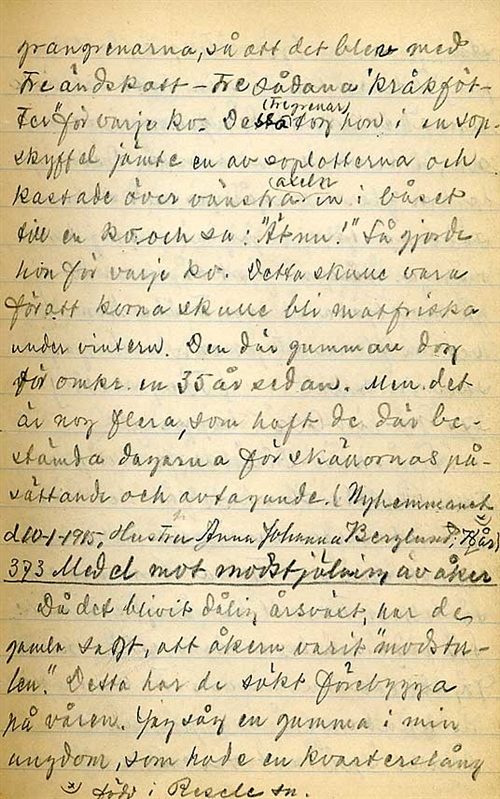 grangrenarna, så att det blev med
tre ändskott – tre sådana "kråkföt-
ter" för varje ko. De (tregrenar) tog hon i en sop-
skyffel jämte en av soplotterna och
kastade över vänstra axeln in i båset
till en ko och sa: "Ät nu!" Så gjorde
hon för varje ko. Detta skulle vara
för att korna skulle bli matfriska
under vintern. Den där gumman dog
för omkr. en 35 år sedan. Men det
är nog flera, som haft de där be-
stämda dagarna för skällornas på-
sättande och avtagande. (Nyhemmanet
d 10-1-1915, Hustru Anna Johanna Berglund x) år)
373 Medel mot modstjälning av åker
Då det blivit dålig årsväxt, har de
gamla sagt, att åkern varit "modstu-
len." Detta har de sökt förebygga
på våren. Jag såg en gumma i min
ungdom, som hade en kvarterslång
x) född i Resele sn.